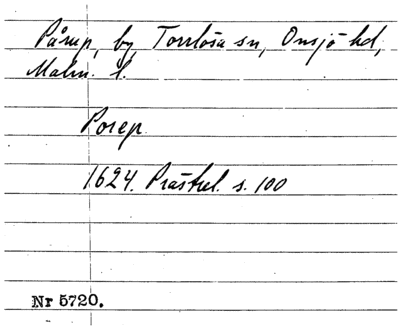 Pårup, by, Torrlösa sn, Onsjö hd,
Malm. l.
Porep
1624. Prästrel. s. 100
Nr 5720.